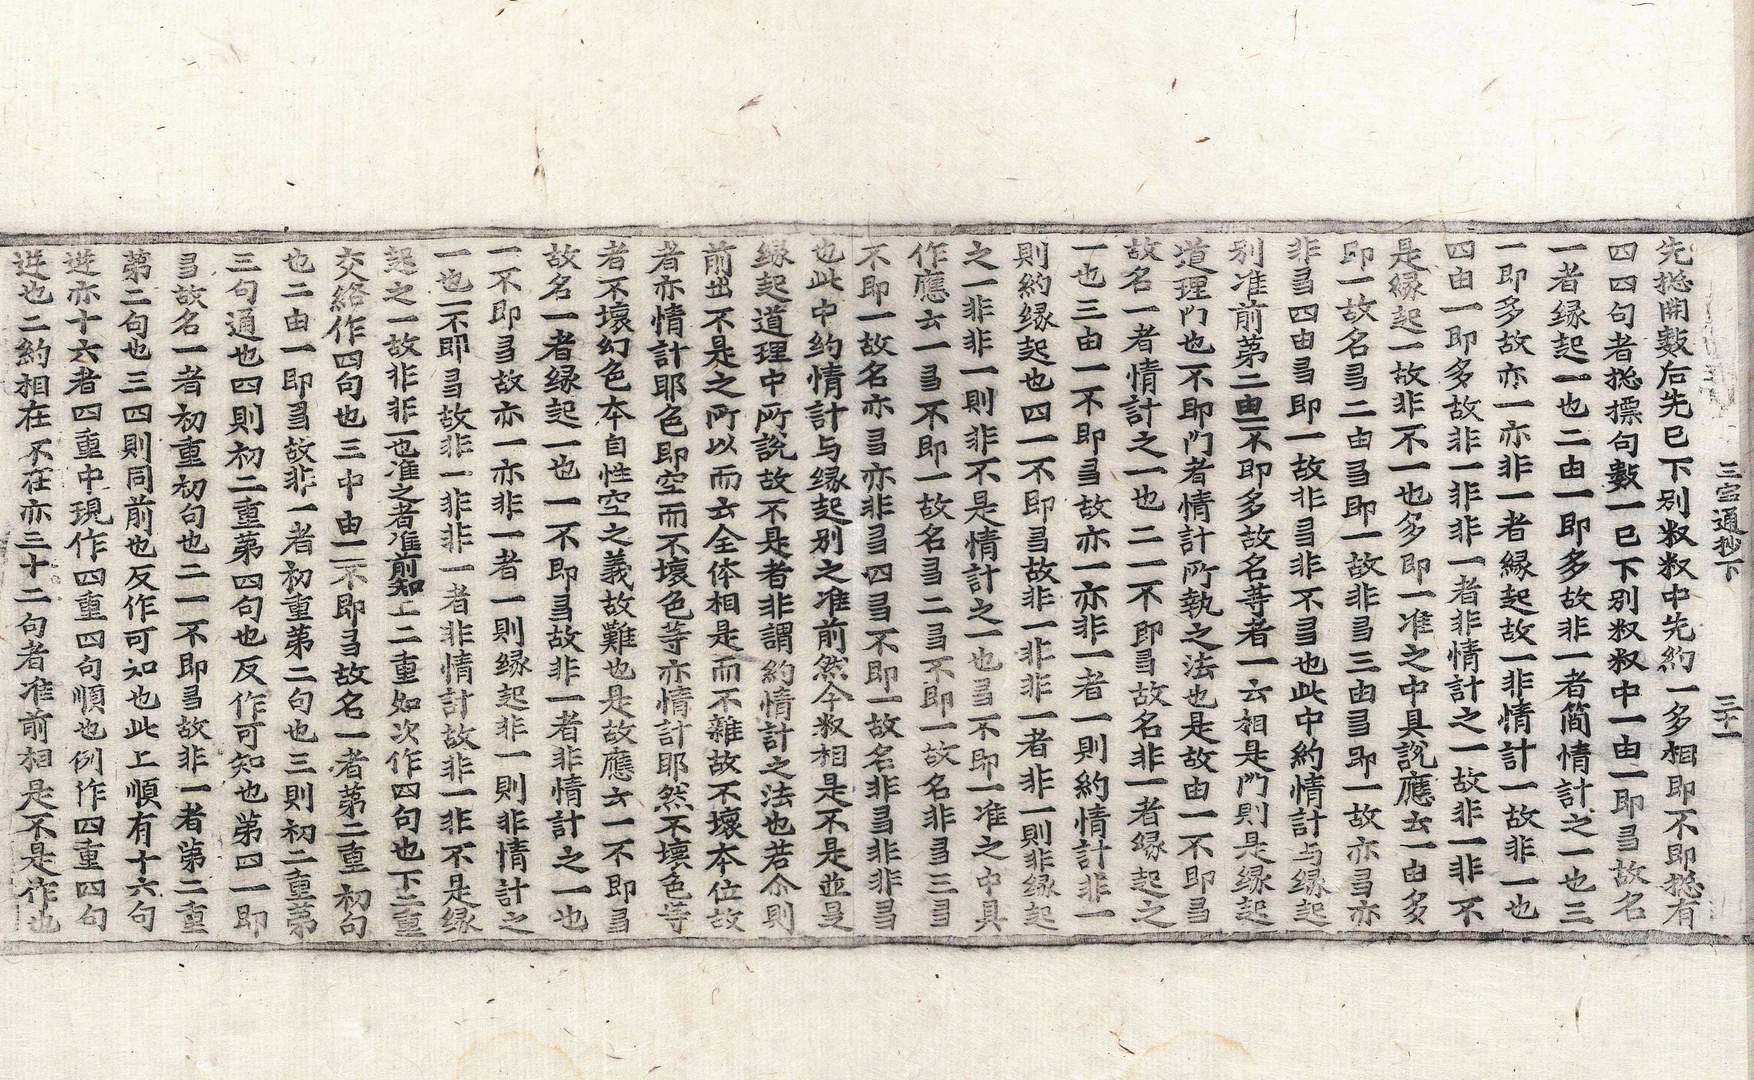 三宝通抄下 三十一
先揔開數后先已下別釈釈中先約一多相即不即揔有
四四句者揔摽句數一已下別釈釈中一由一即多故名
一者縁起一也二由一即多故非一者簡情計之一也三
一即多故亦一亦非一者縁起故一非情計一故非一也
四由一即多故非一非非一者非情計之一故非一非不
是縁起一故非不一也多即一准之中具說應云一由多
即一故名多二由多即一故非多三由多即一故亦多亦
非多四由多即一故非多非不多也此中約情計与縁起
別准前第二由一不即多故名等者一云相是門則是縁起
道理門也不即門者情計所執之法也是故由一不即多
故名一者情計之一也二一不即多故名非一者縁起之
一也三由一不即多故亦一亦非一者一則約情計非一
則約縁起也四一不即多故非一非非一者非一則非縁起
之一非非一則非不是情計之一也多不即一准之中具
作應云一多不即一故名多二多不即一故名非多三多
不即一故名亦多亦非多四多不即一故名非多非非多
也此中約情計与縁起別之准前然今釈相是不是並是
縁起道理中所說故不是者非謂約情計之法也若尒則
前出不是之所以而云全体相是而不雜故不壞本位故
者亦情計耶色即空而不壞色等亦情計耶然不壞色等
者不壞幻色本自性空之義故難也是故應云一不即多
故名一者縁起一也一不即多故非一者非情計之一也
一不即多故亦一亦非一者一則縁起非一則非情計之
一也一不即多故非一非非一者非情計故非一非不是縁
起之一故非非一也准之者准前知上二重如次作四句也下二重
交絡作四句也三中由一不即多故名一者第二重初句
也二由一即多故非一者初重第二句也三則初二重第
三句通也四則初二重第四句也反作可知也第四一即
多故名一者初重初句也二一不即多故非一者第二重
第二句也三四則同前也反作可知也此上順有十六句
逆亦十六者四重中現作四重四句順也例作四重四句
逆也二約相在不在亦三十二句者准前相是不是作也